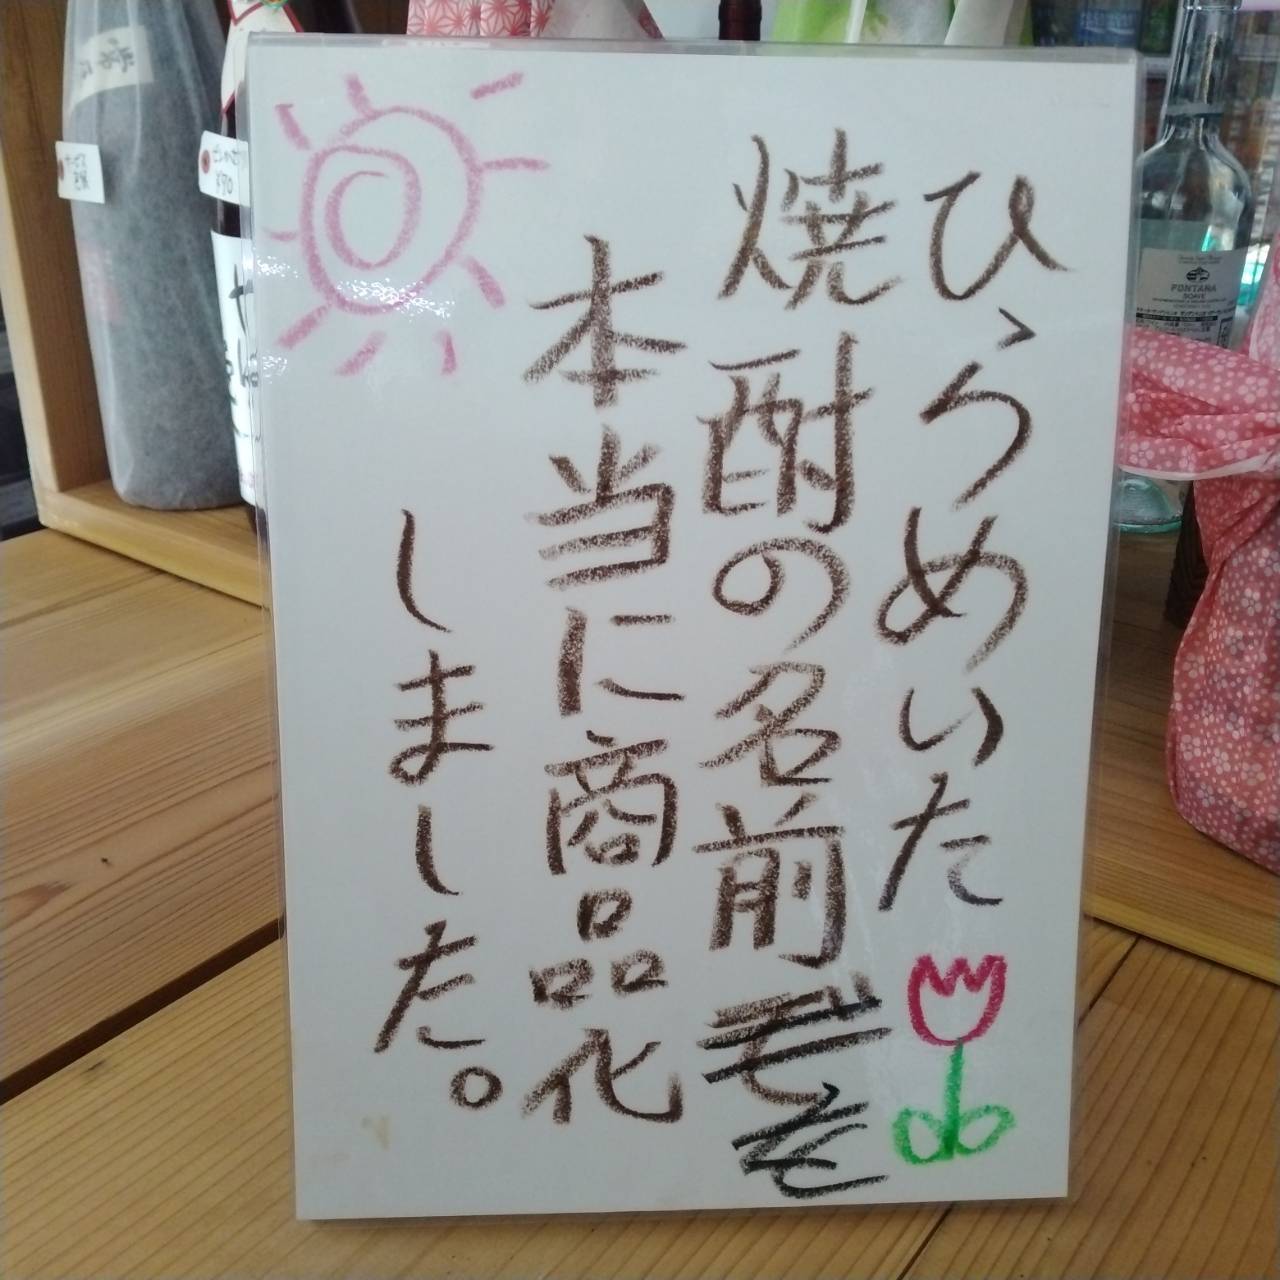 ひらめいた
焼酎の名前を
本当に商品化
しました。
FONTANA
SOAVE